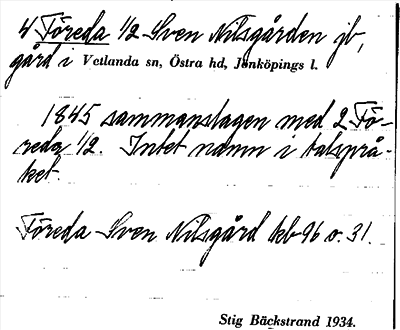 4 Föreda 1/2 Sven Nilsgården jb,
gård i Vetlanda sn, Östra hd, Jönköpings l.
1845 sammanslagen med 2 Fö-
reda 1/2. Intet namn i talsprå-
ket.
Föreda Sven Nilsgård kb 96 o. 31.
Stig Bäckstrand 1934.